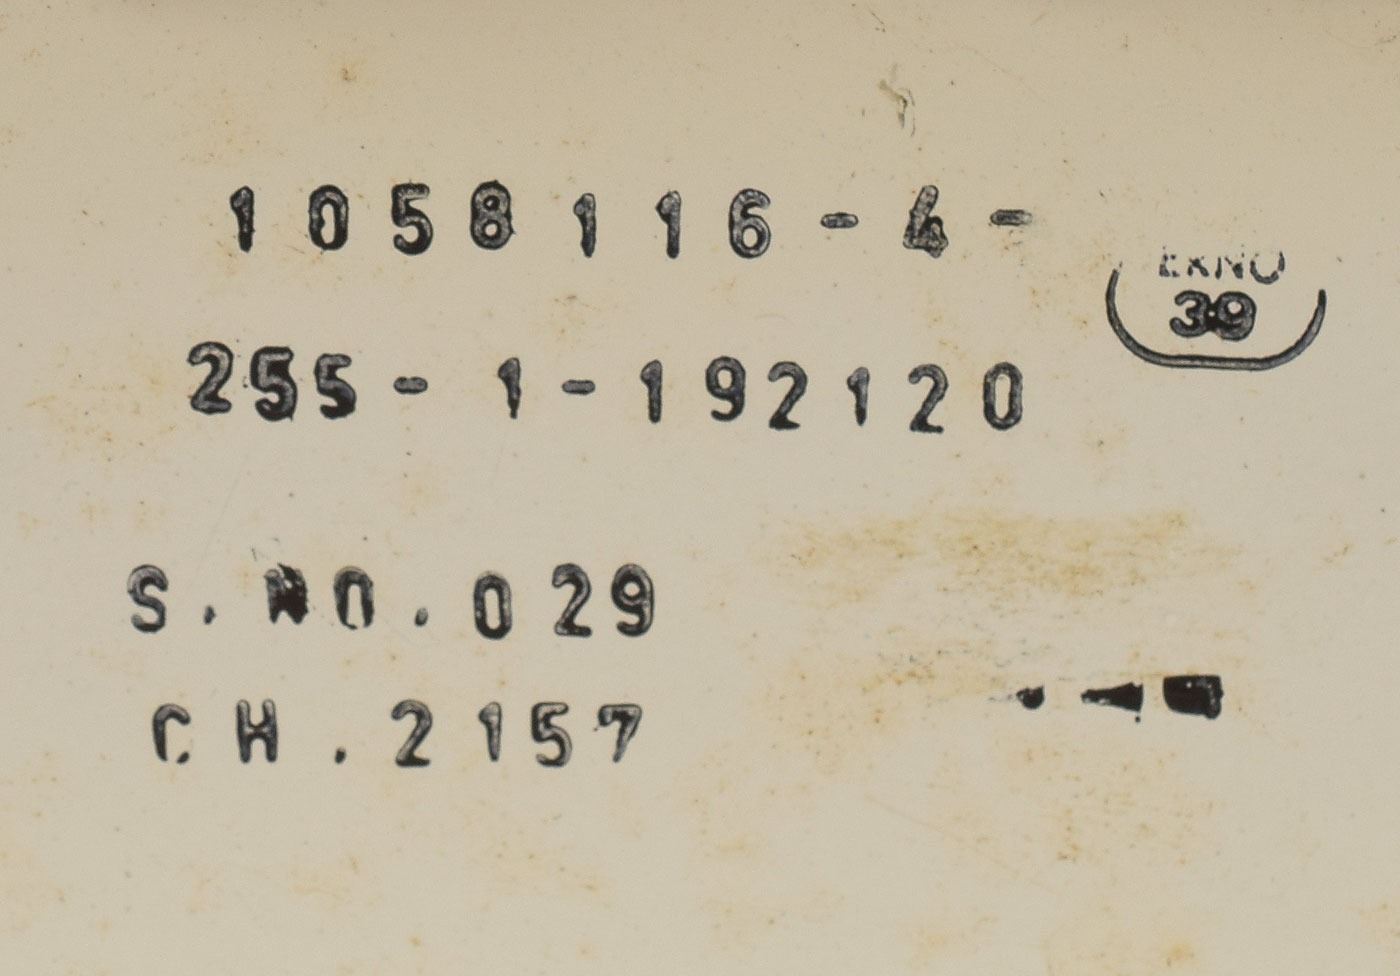 1058116-4-
ERNO
39
255-1-192120
S.NO.029
CH.2157